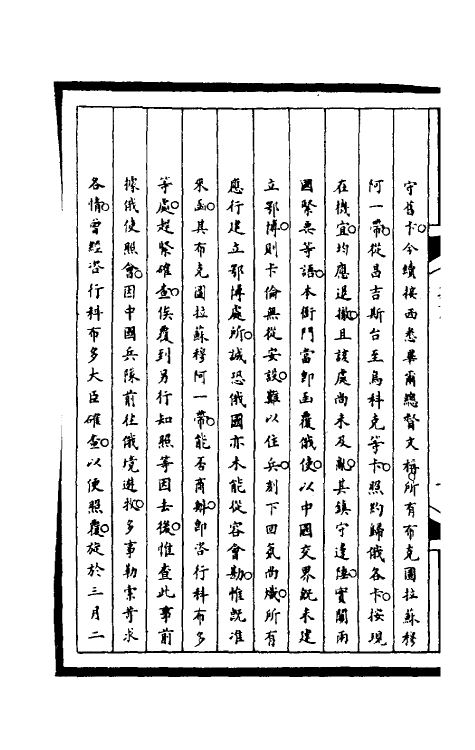 守舊卡今續接西悉畢爾總督文稱所有布克圖拉蘇穆
阿一帶從昌吉斯台至烏科克等卡照約歸俄各卡按現
在機宜均應退撤且該處尚未及亂其鎮守邊陲實關兩
國緊要等語本衙門當即函覆俄使以中國交界旣未建
立鄂博則卡倫無從安設難以住兵刻下回氛尚熾所有
應行建立鄂博處所誠恐俄國亦未能從容會勘惟旣准
來函其布克圖拉蘇穆阿一帶能否商辦卽咨行科布多
等處趕緊確查俟覆到另行知照等因去後惟查此事前
據俄使照會因中國兵隊前往俄境遊牧多事勒索苛求
各情曾經咨行科布多大臣確查以便照覆旋於三月二